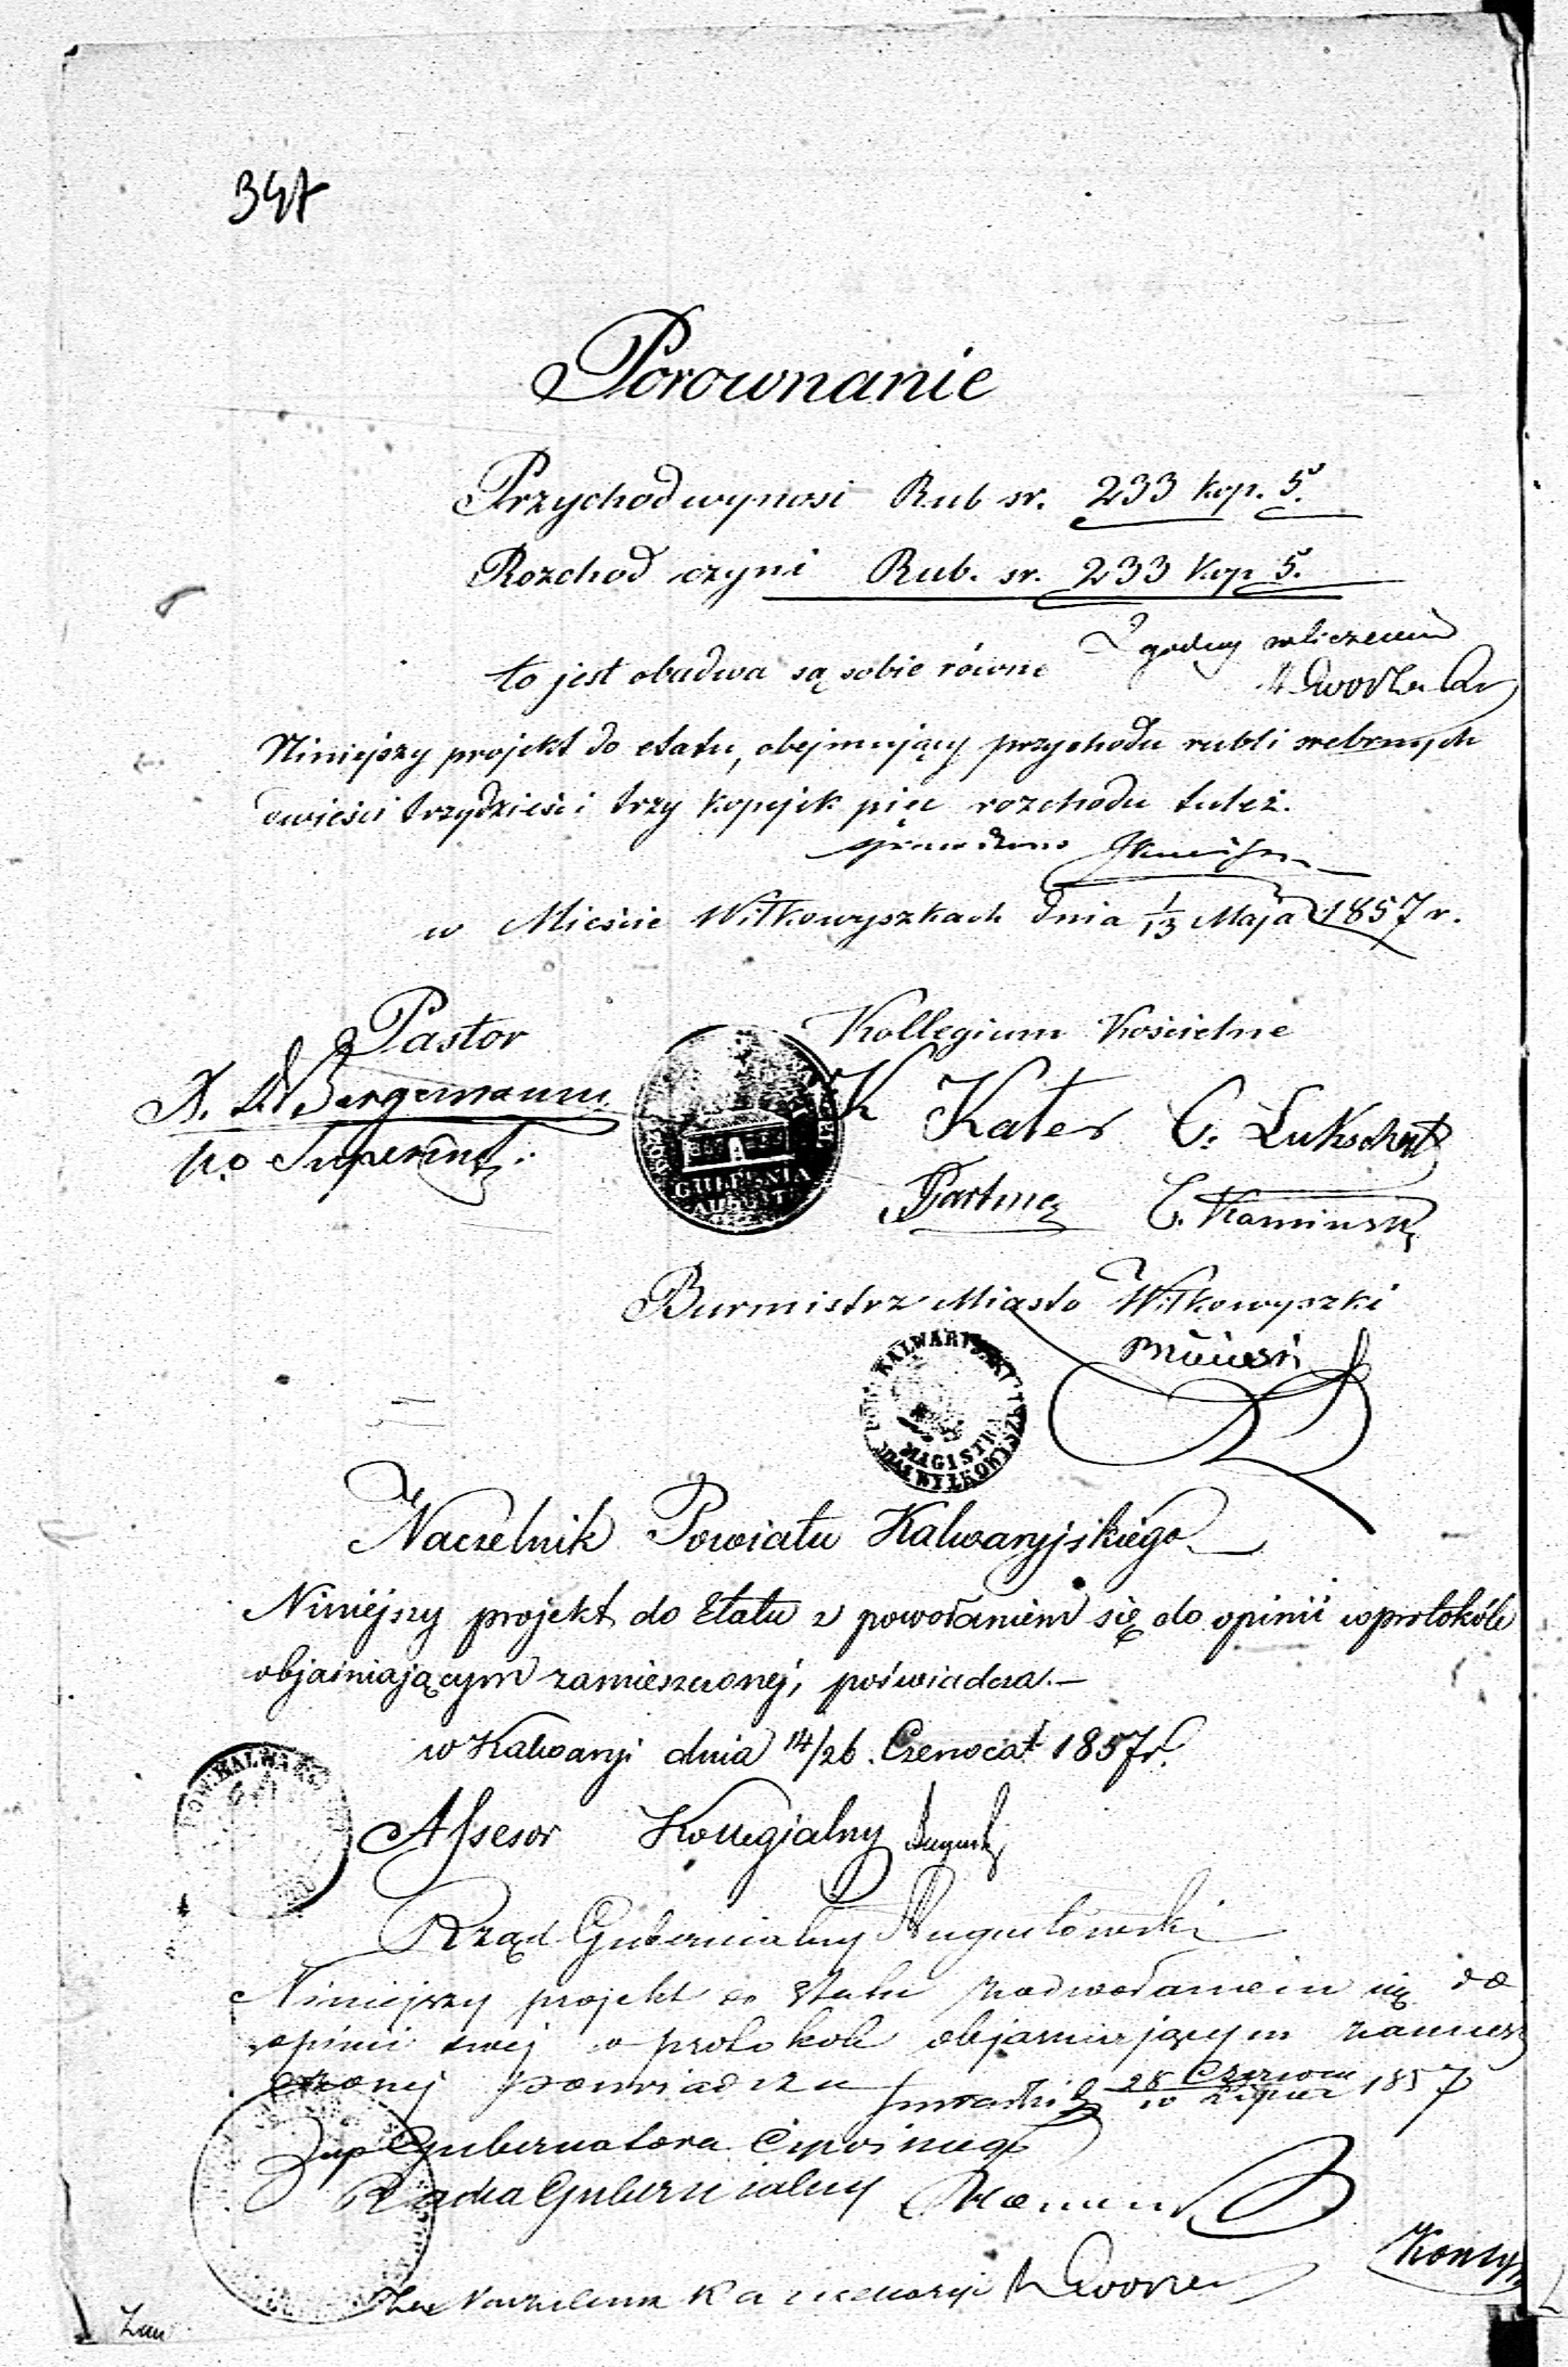 347
Porownanie
Przychod wynosi Rub sr. 233 kop. 5.
Rozchod czyni Rub. sr. 233 kop 5.
Zgodny
to jest obadwa są sobie równe
Niniejszy projekt do etatu, obejmujący przychodu rubli srebrnych
dwieście trzydzieści trzy kopejek pięc rozchodu tuteż.
sprawdzono
w Mieście Wiłkowyszkach dnia 1/13 Maja 1857 r.
Pastor
Kollegium Kościelne
Bergemann
p.o Superint:
K Kater C. Lukschat
C. Kaminski
Burmistrz Miasta Wiłkowyszki
KALWARYJSKI
MAGISTRA
WYŁKOWYSZK
Naczelnik Powiatu Kalwaryjskiego
Niniejszy projekt do Etatu z powołaniem się do opinii w protokóle
objaśniającym zamieszczonej, poświadcza.—
w Kalwaryi dnia 14/26. Czerwca 1857 r.
POW. KALWAR
Assesor Kollegjalny
Rząd Gubernialny Augustowski
Niniejszy projekt do Etatu z odwołaniem się do
opinii swej w protokole objaśniającym zamiesz
czonej poświadcza
28 Czerwca
10 Lipca 1857
Zup Gubernatora Cywilnego
Radca Gubernialny
Za Naczelnika Kancellaryi